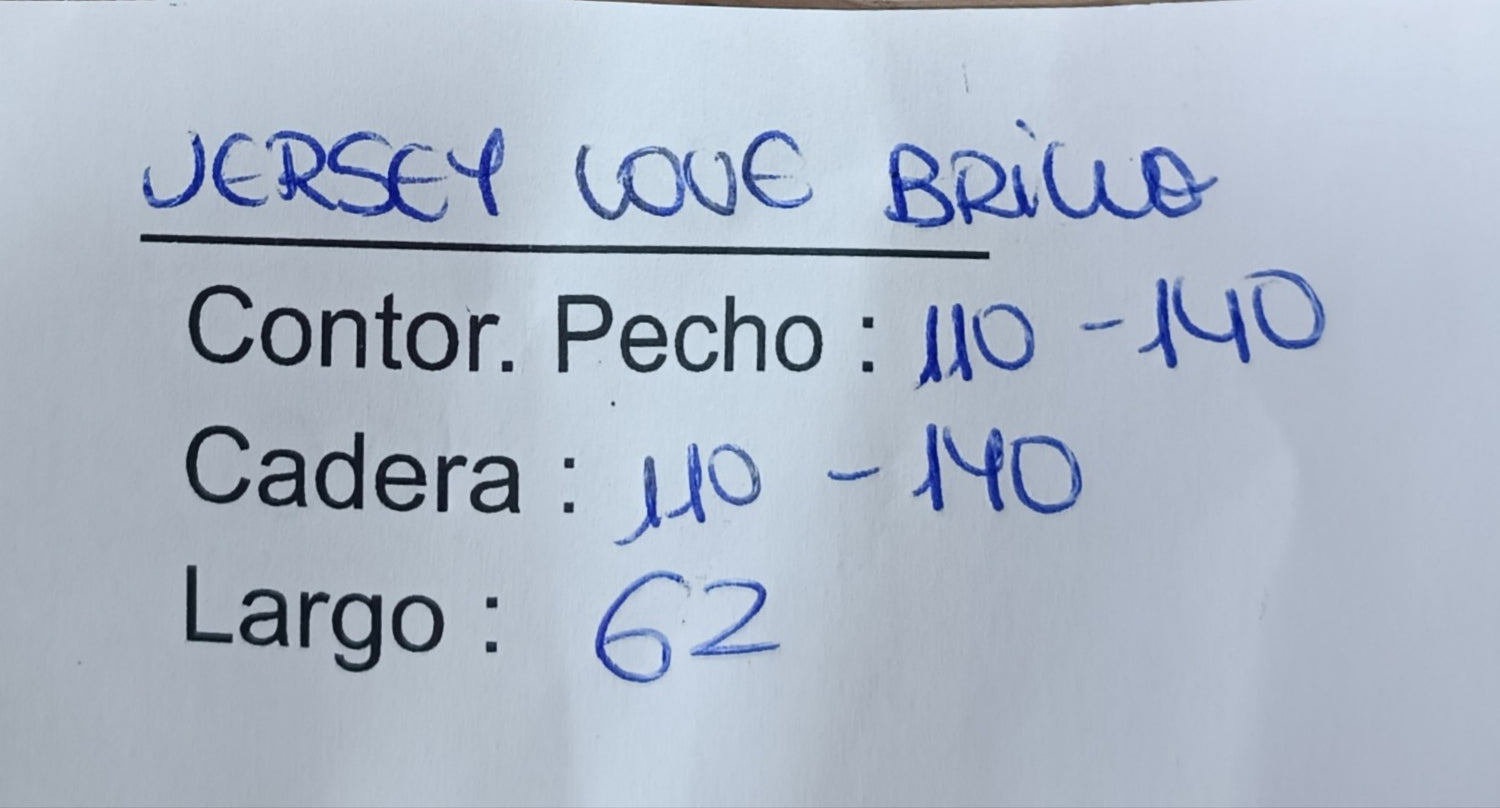 JERSEY LOVE BRILLO
Contor. Pecho : 110 - 140
Cadera : 110 - 140
Largo : 62